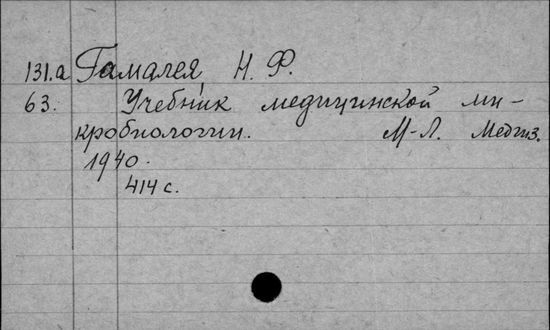 131.а Гамалея, Н. Ф.
63. Учебник медицинской ми-
кробиологии. М-Л. Медгиз.
1940.
414 с.